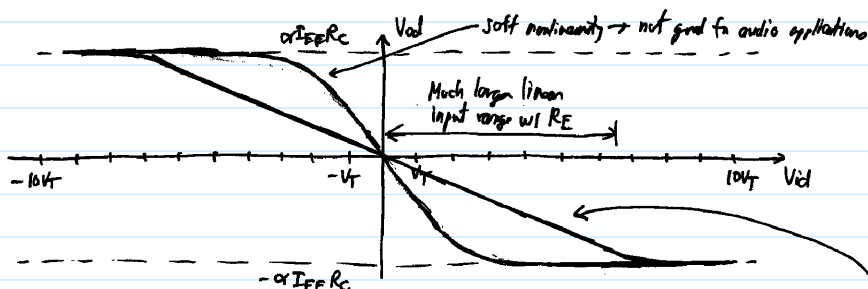 αIEERC
Vod
soft nonlinearity → not good for audio applications
Much larger linear
input range w/ RE
-10VT
-VT
VT
10VT
Vid
-αIEERC